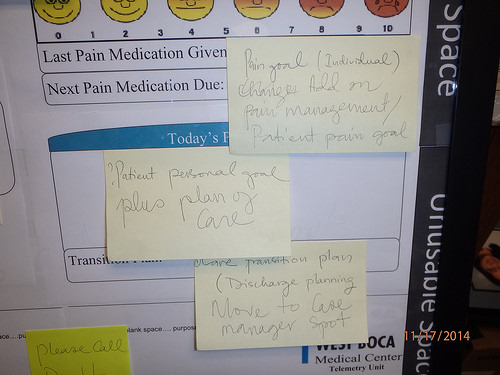 0 1 2 3 4 5 6 7 8 9 10
Last Pain Medication Given
Next Pain Medication Due:
Pain goal (Individual)
Changes Add on
pain management/
Patient pain goal
Today's P
?Patient personal goal
plus plan of
care
Transition Plan
Care transition plan
(Discharge planning
Move to Case
manager spot
ace....
lank space.... purpos
Please Call
WEST BOCA
Medical Center
Telemetry Unit
Space
Unusable Spac
11/17/2014